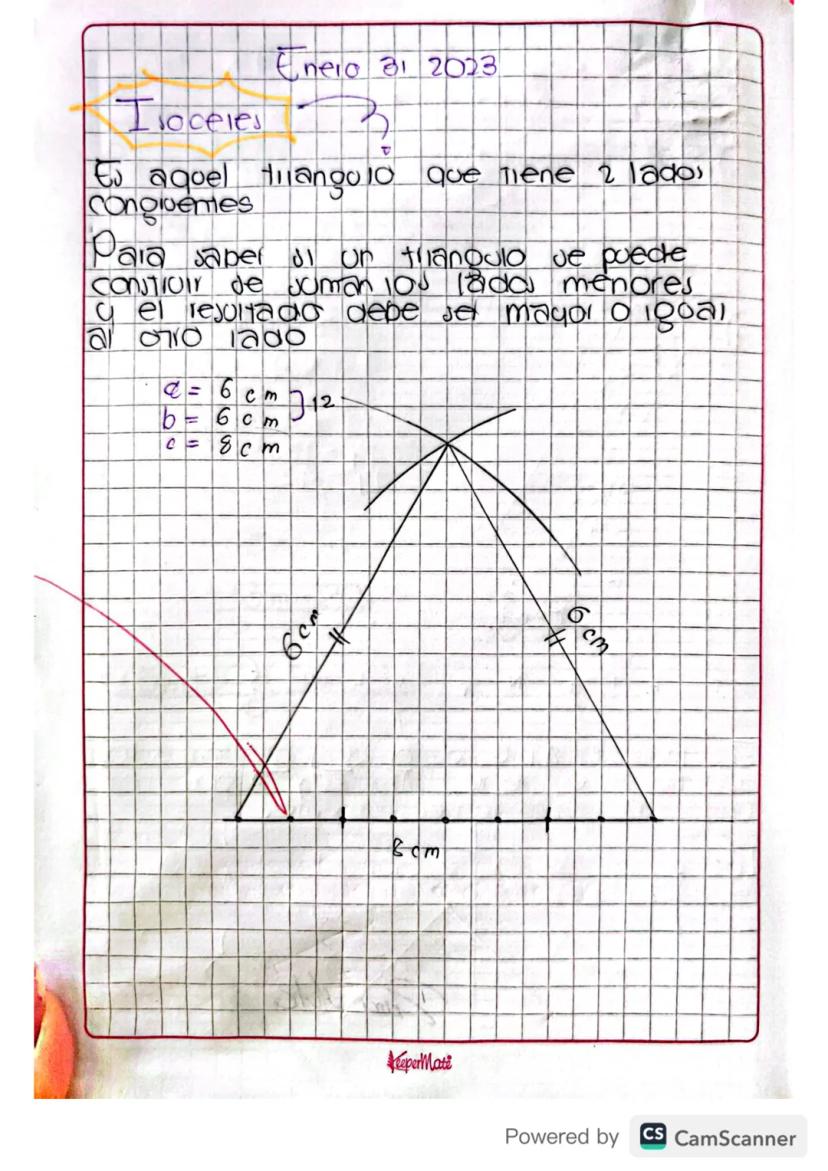 Enero 31 2023
Isoceles
Es aquel triangulo que tiene 2 lados
congruentes
Para saber si un triangulo se puede
construir de suman los lados menores
y el resultado debe ser mayor o igual
al otro lado
a = 6 cm
b = 6 cm
12
c = 8 cm
6 cm
6 cm
8 cm
KeeperMate
Powered by CS CamScanner